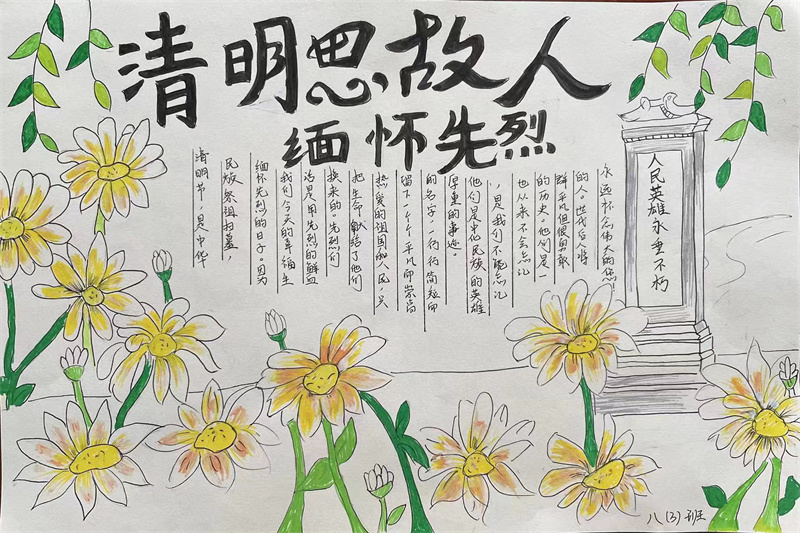 清明思故人
缅怀先烈
清明节,是中华
民族祭祖扫墓,
缅怀先烈的日子。因为
我们今天的幸福生
活是用先烈的鲜血
换来的。先烈们
把生命献给了他们
热爱的祖国和人民,只
留下一个个平凡而崇高
的名字,一行行简短而
厚重的事迹。
他们是中华民族的英雄
,是我们不能忘记
也从来不会忘记
的历史。他们是一
群平凡但很勇敢
的人。世代后人将
永远怀念伟大的您!
人民英雄永垂不朽
八(3)班